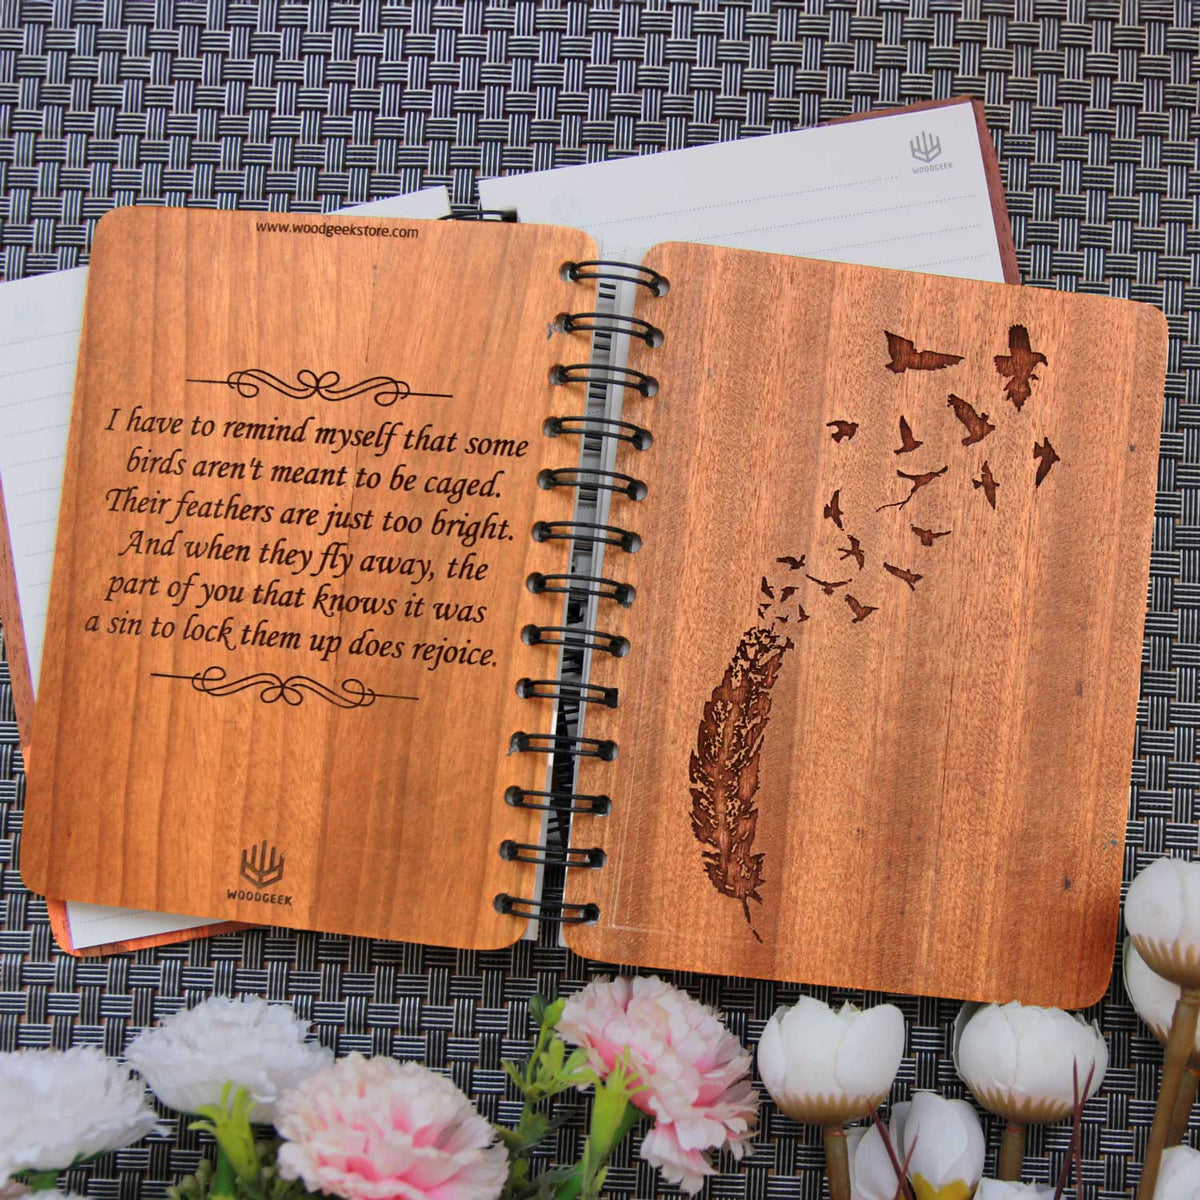 WOODGEEK
www.woodgeekstore.com
I have to remind myself that some
birds aren't meant to be caged.
Their feathers are just too bright.
And when they fly away, the
part of you that knows it was
a sin to lock them up does rejoice.
WOODGEEK